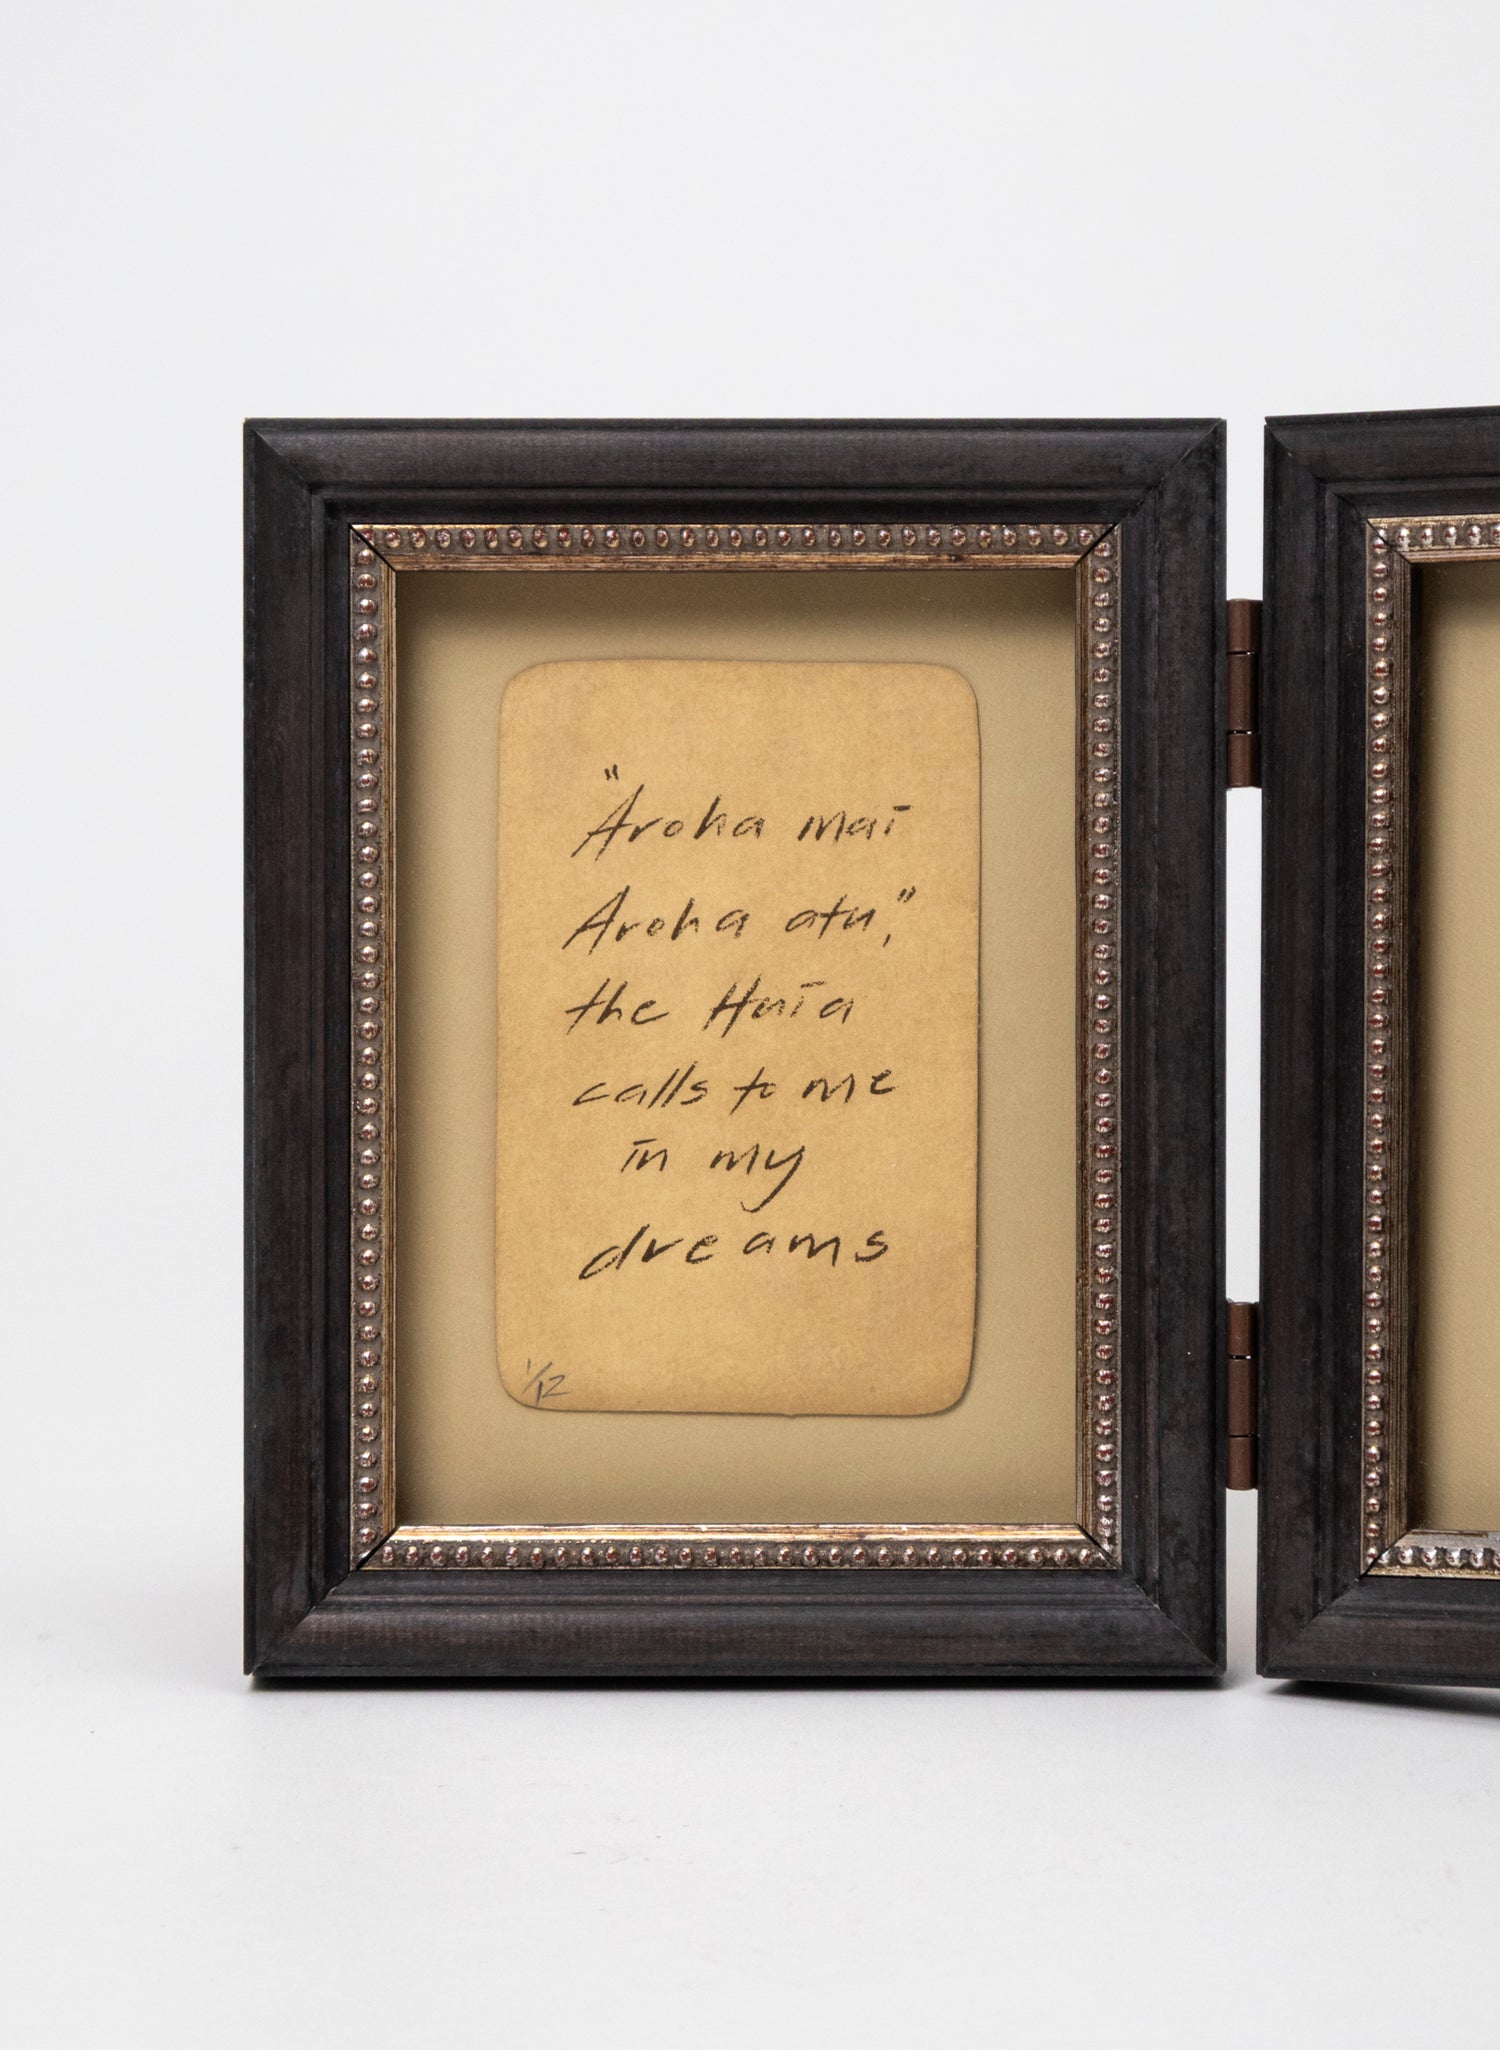 "Aroha mai
Aroha atu,"
the Huia
calls to me
in my
dreams
1/12